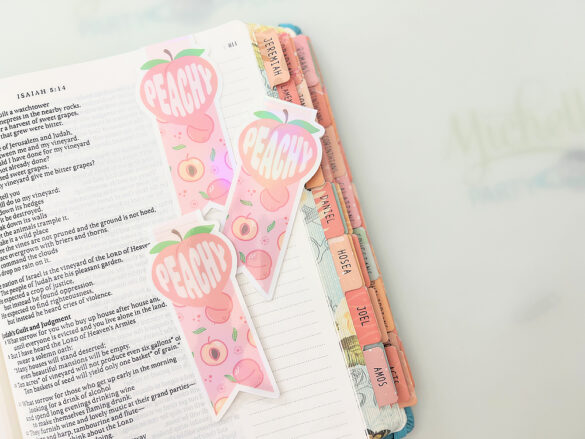 ISAIAH 5:14
811
built a watchtower
winepress in the nearby rocks.
for a harvest of sweet grapes,
that grew were bitter.
of Jerusalem and Judah,
between me and my vineyard.
could I have done for my vineyard
not already done?
expected sweet grapes,
my vineyard give me bitter grapes?
tell you
will do to my vineyard:
down its hedges
it be destroyed.
break down its walls
let the animals trample it.
make it a wild place
where the vines are not pruned and the ground is not hoed,
place overgrown with briers and thorns.
command the clouds
drop no rain on it.
nation of Israel is the vineyard of the LORD of Heaven's
The people of Judah are his pleasant garden.
expected a crop of justice,
but instead he found oppression.
He expected to find righteousness,
but instead he heard cries of violence.
Judah's Guilt and Judgment
What sorrow for you who buy up house after house and
until everyone is evicted and you live alone in the land.
But I have heard the LORD of Heaven's Armies
swear a solemn oath:
"Many houses will stand deserted;
even beautiful mansions will be empty.
Ten acres of vineyard will not produce even six gallons of
Ten baskets of seed will yield only one basket of grain."
What sorrow for those who get up early in the morning
looking for a drink of alcohol
and spend long evenings drinking wine
to make themselves flaming drunk.
They furnish wine and lovely music at their grand parties—
lyre and harp, tambourine and flute—
PEACHY
PEACHY
PEACHY
JEREMIAH
DANIEL
HOSEA
JOEL
AMOS